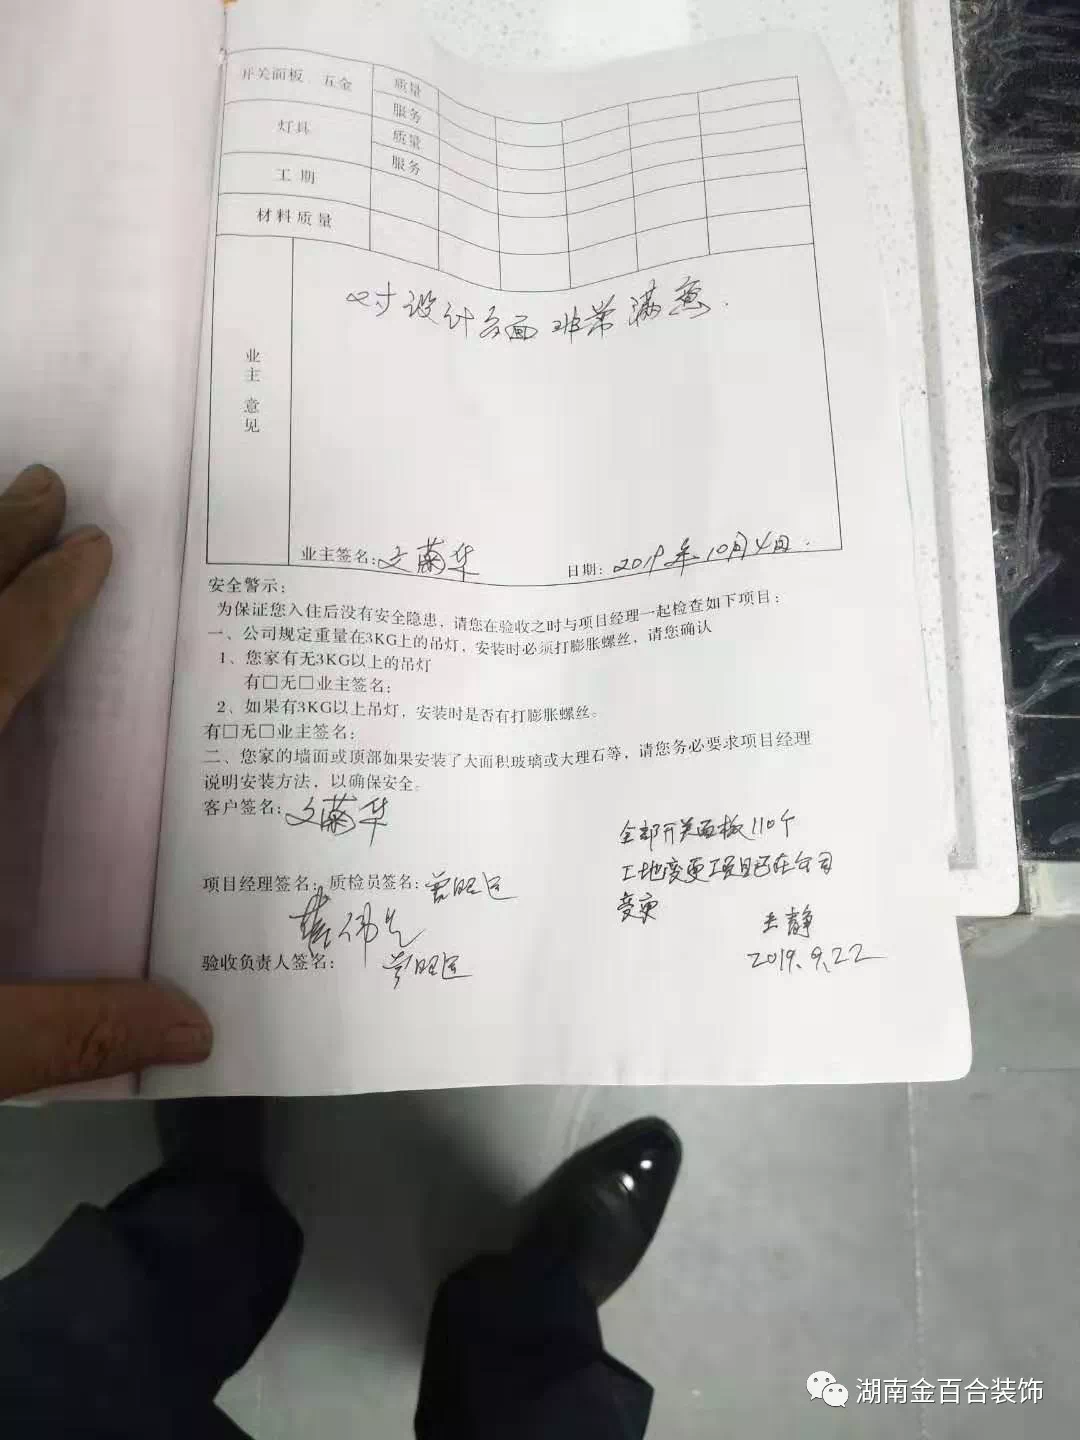 开关面板 五金 质量
服务
灯具 质量
服务
工期
材料质量
业主意见
对设计方面非常满意.
业主签名: 文菊华 日期: 2019年10月4日.
安全警示:
为保证您入住后没有安全隐患,请您在验收之时与项目经理一起检查如下项目:
一、公司规定重量在3KG上的吊灯,安装时必须打膨胀螺丝,请您确认
1、您家有无3KG以上的吊灯
有□无□业主签名:
2、如果有3KG以上吊灯,安装时是否有打膨胀螺丝。
有□无□业主签名:
二、您家的墙面或顶部如果安装了大面积玻璃或大理石等,请您务必要求项目经理
说明安装方法,以确保安全。
客户签名: 文菊华
全部开关面板110个
工地变更项目已在公司
变更
王静
2019.9.22
项目经理签名: 质检员签名:
验收负责人签名:
湖南金百合装饰